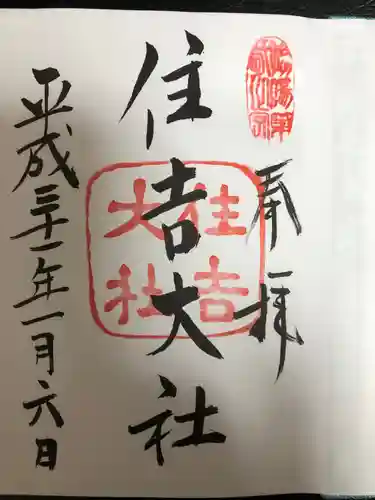 奉拝
住吉大社
住吉
大社
平成三十一年一月六日